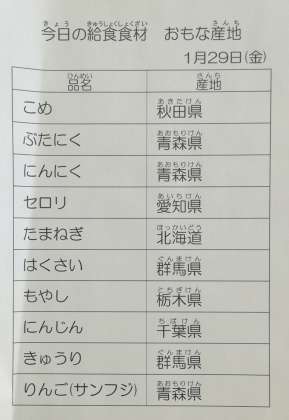 今日の給食食材　おもな産地
1月29日(金)
品名　産地
こめ　秋田県
ぶたにく　青森県
にんにく　青森県
セロリ　愛知県
たまねぎ　北海道
はくさい　群馬県
もやし　栃木県
にんじん　千葉県
きゅうり　群馬県
りんご(サンフジ)　青森県